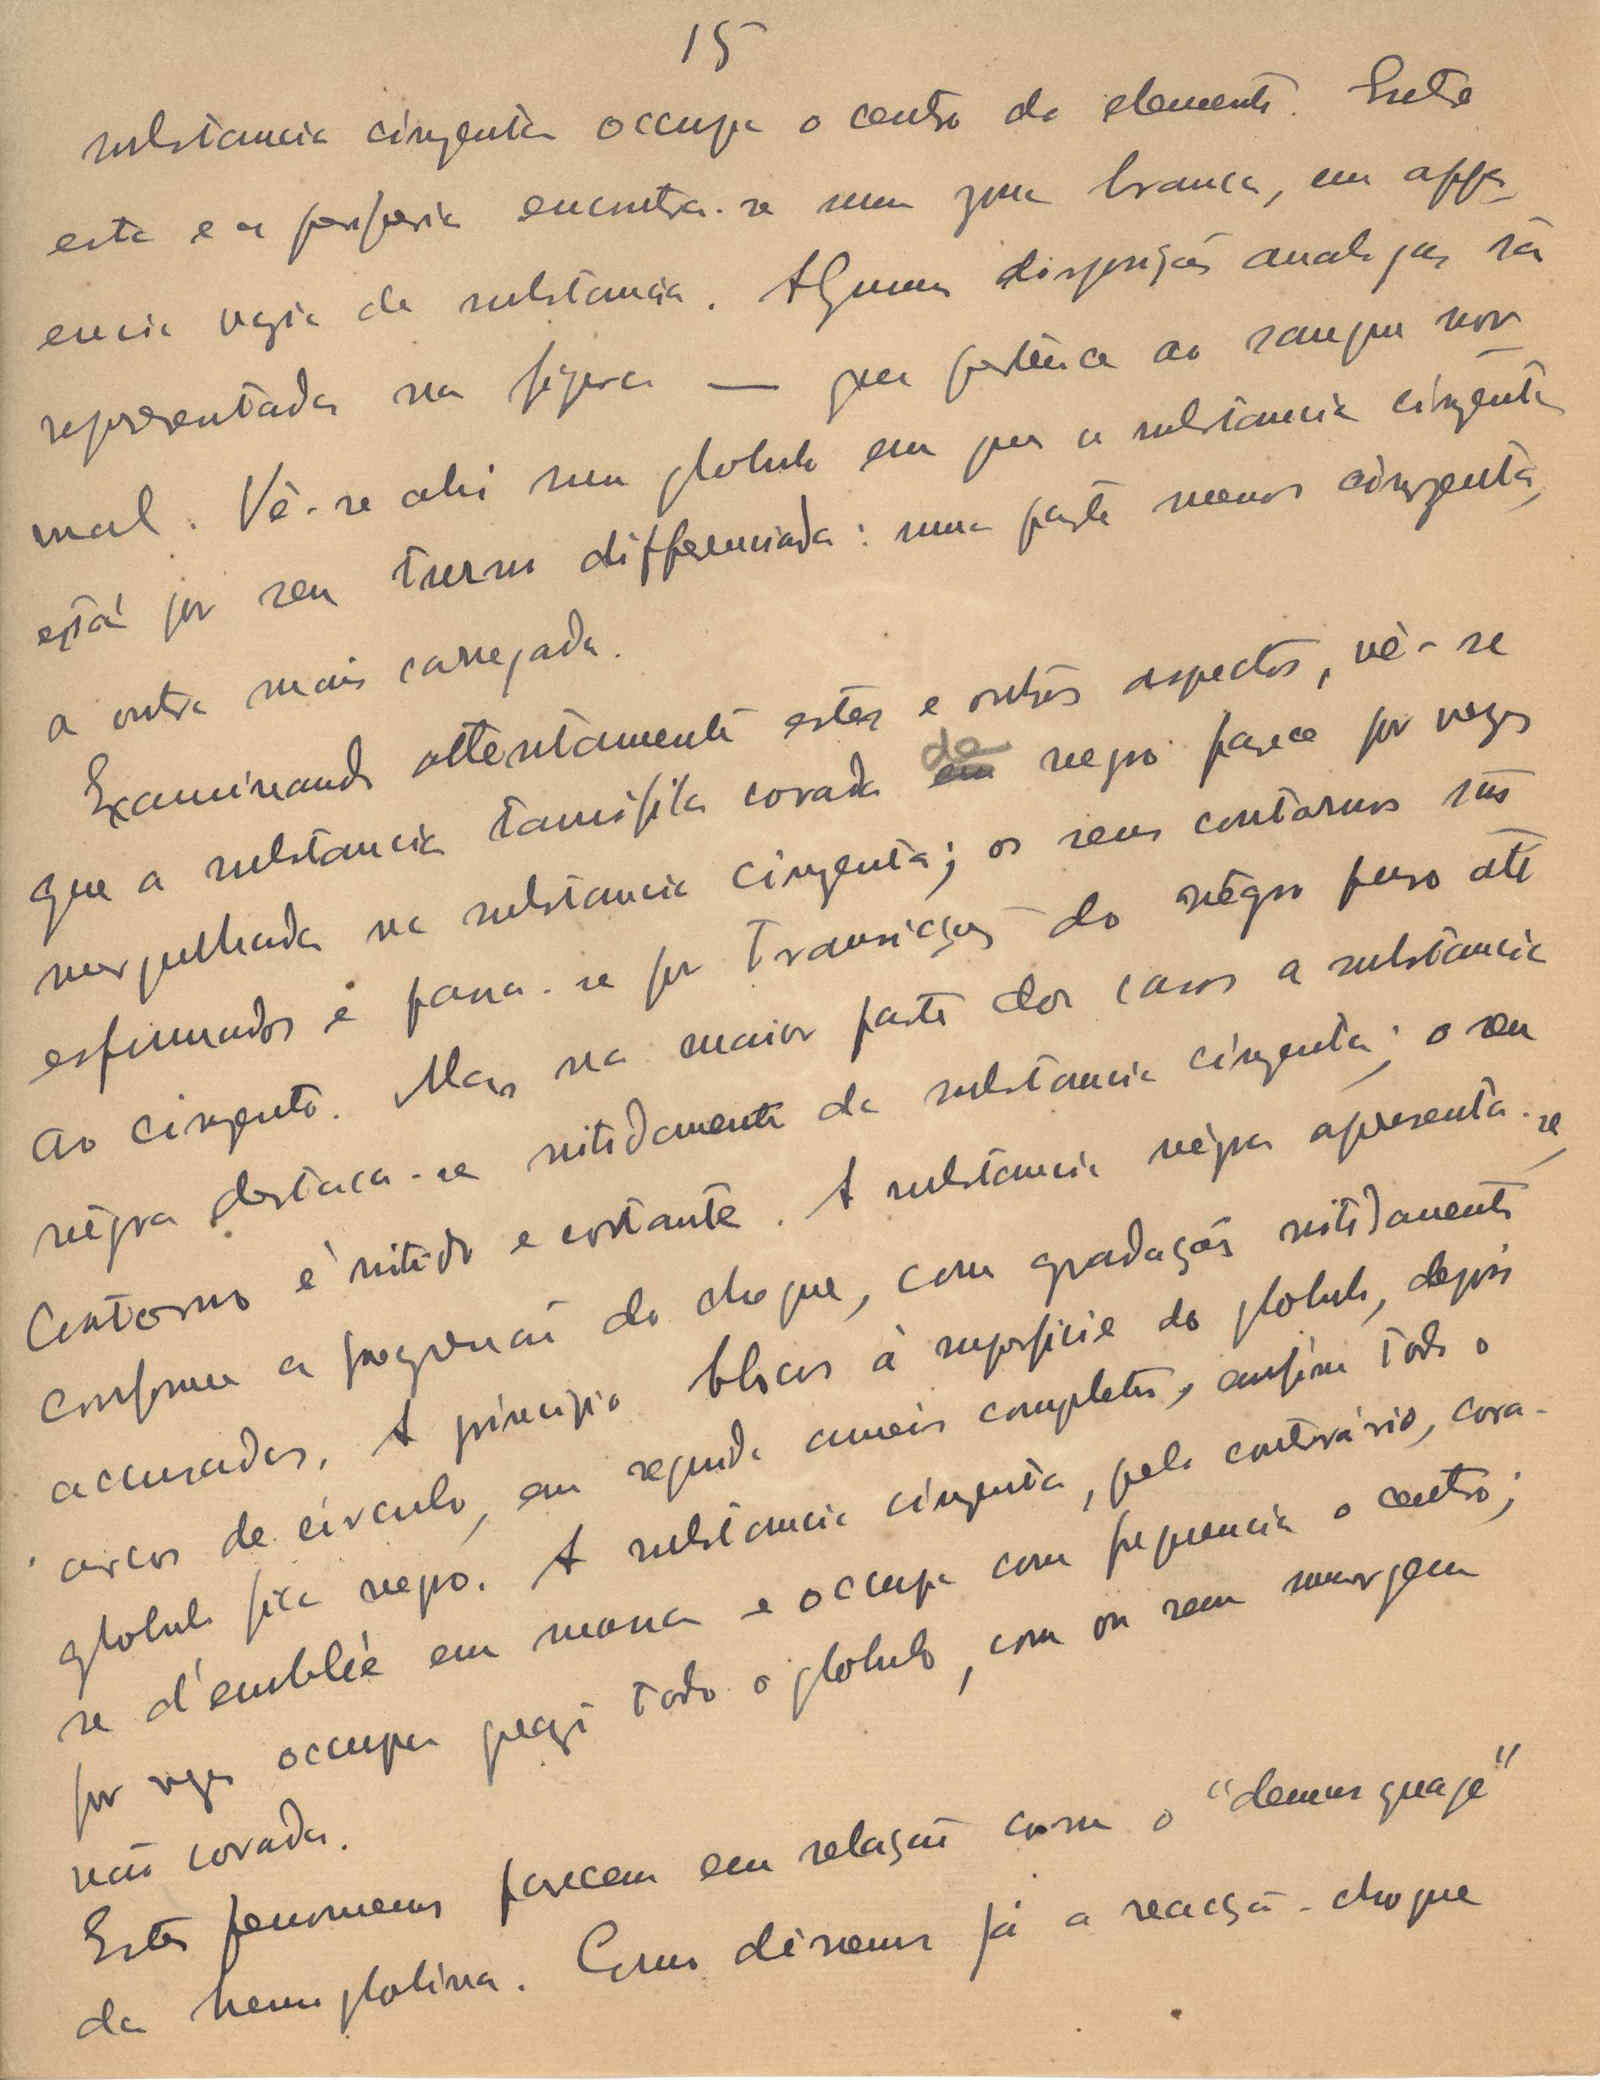 15
substancia cinzenta occupa o centro do elemento. Entre
esta e a periferia encontra-se uma zona branca, em appa-
encia vazia de substancia. Algumas disposições analogas são
representadas na figura — que pertence ao sangue nor-
mal. Vê-se ahi um globulo em que a substancia cinzenta
está por seu turno differenciada: uma parte menos cinzenta,
a outra mais carregada.
Examinando attentamente estes e outros aspectos, vê-se
que a substancia tanofila corada de negro parece por vezes
mergulhada na substancia cinzenta; os seus contornos são
esfumados e passa-se por transicções do négro puro até
ao cinzento. Mas na maior parte dos casos a substancia
négra destaca-se nitidamente da substancia cinzenta; o seu
contorno é nitido e cortante. A substancia négra apresenta-se,
conforme a progressão do choque, com gradações nitidamente
accusadas. A principio blocos à superficie do globulo, depois
arcos de circulo, em seguida anneis completos, emfim todo o
globulo fica negro. A substancia cinzenta, pelo contrário, cora-
se d'emblée em massa e occupa com frequencia o centro;
por vezes occupa quasi todo o globulo, com ou sem margem
não corada.
Estes fenomenos parecem em relação com o "demasquage"
da hemoglobina. Como dissemos já a reacção-choque